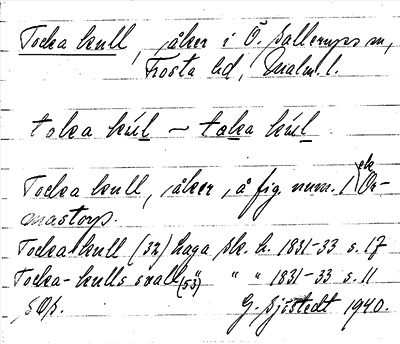 Tocka kull, åker i Ö. Sallerups sn,
Frosta hd, Malm. l.
toka kúl — toka kúl
Tocka kull, åker, å fig. num. 1 ek Or-
mastorp.
Tocka kull (32) haga sk. h. 1831-33 s. 17
Tocka-kulls svall (53) " " 1831-33 s. 11
G. Sjöstedt 1940.